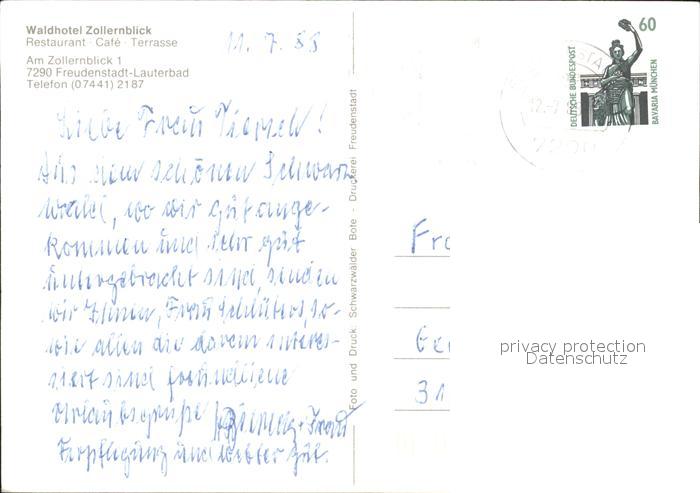 Waldhotel Zollernblick
Restaurant · Café · Terrasse
Am Zollernblick 1
7290 Freudenstadt-Lauterbad
Telefon (07441) 2187
11. 7. 88
Liebe Frau !
Aus dem schönen Schwarz
wald, wo wir gut ange-
kommen und sehr gut
untergebracht sind, senden
wir Ihnen, Frau Schlüters, so-
wie allen die daran interes-
siert sind freundliche
Urlaubsgrüße + Frau
Verpflegung und Wetter gut.
Foto und Druck: Schwarzwälder Bote - Druckerei Freudenstadt
60
DEUTSCHE BUNDESPOST
BAVARIA MÜNCHEN
Fr
Ge
31
privacy protection
Datenschutz